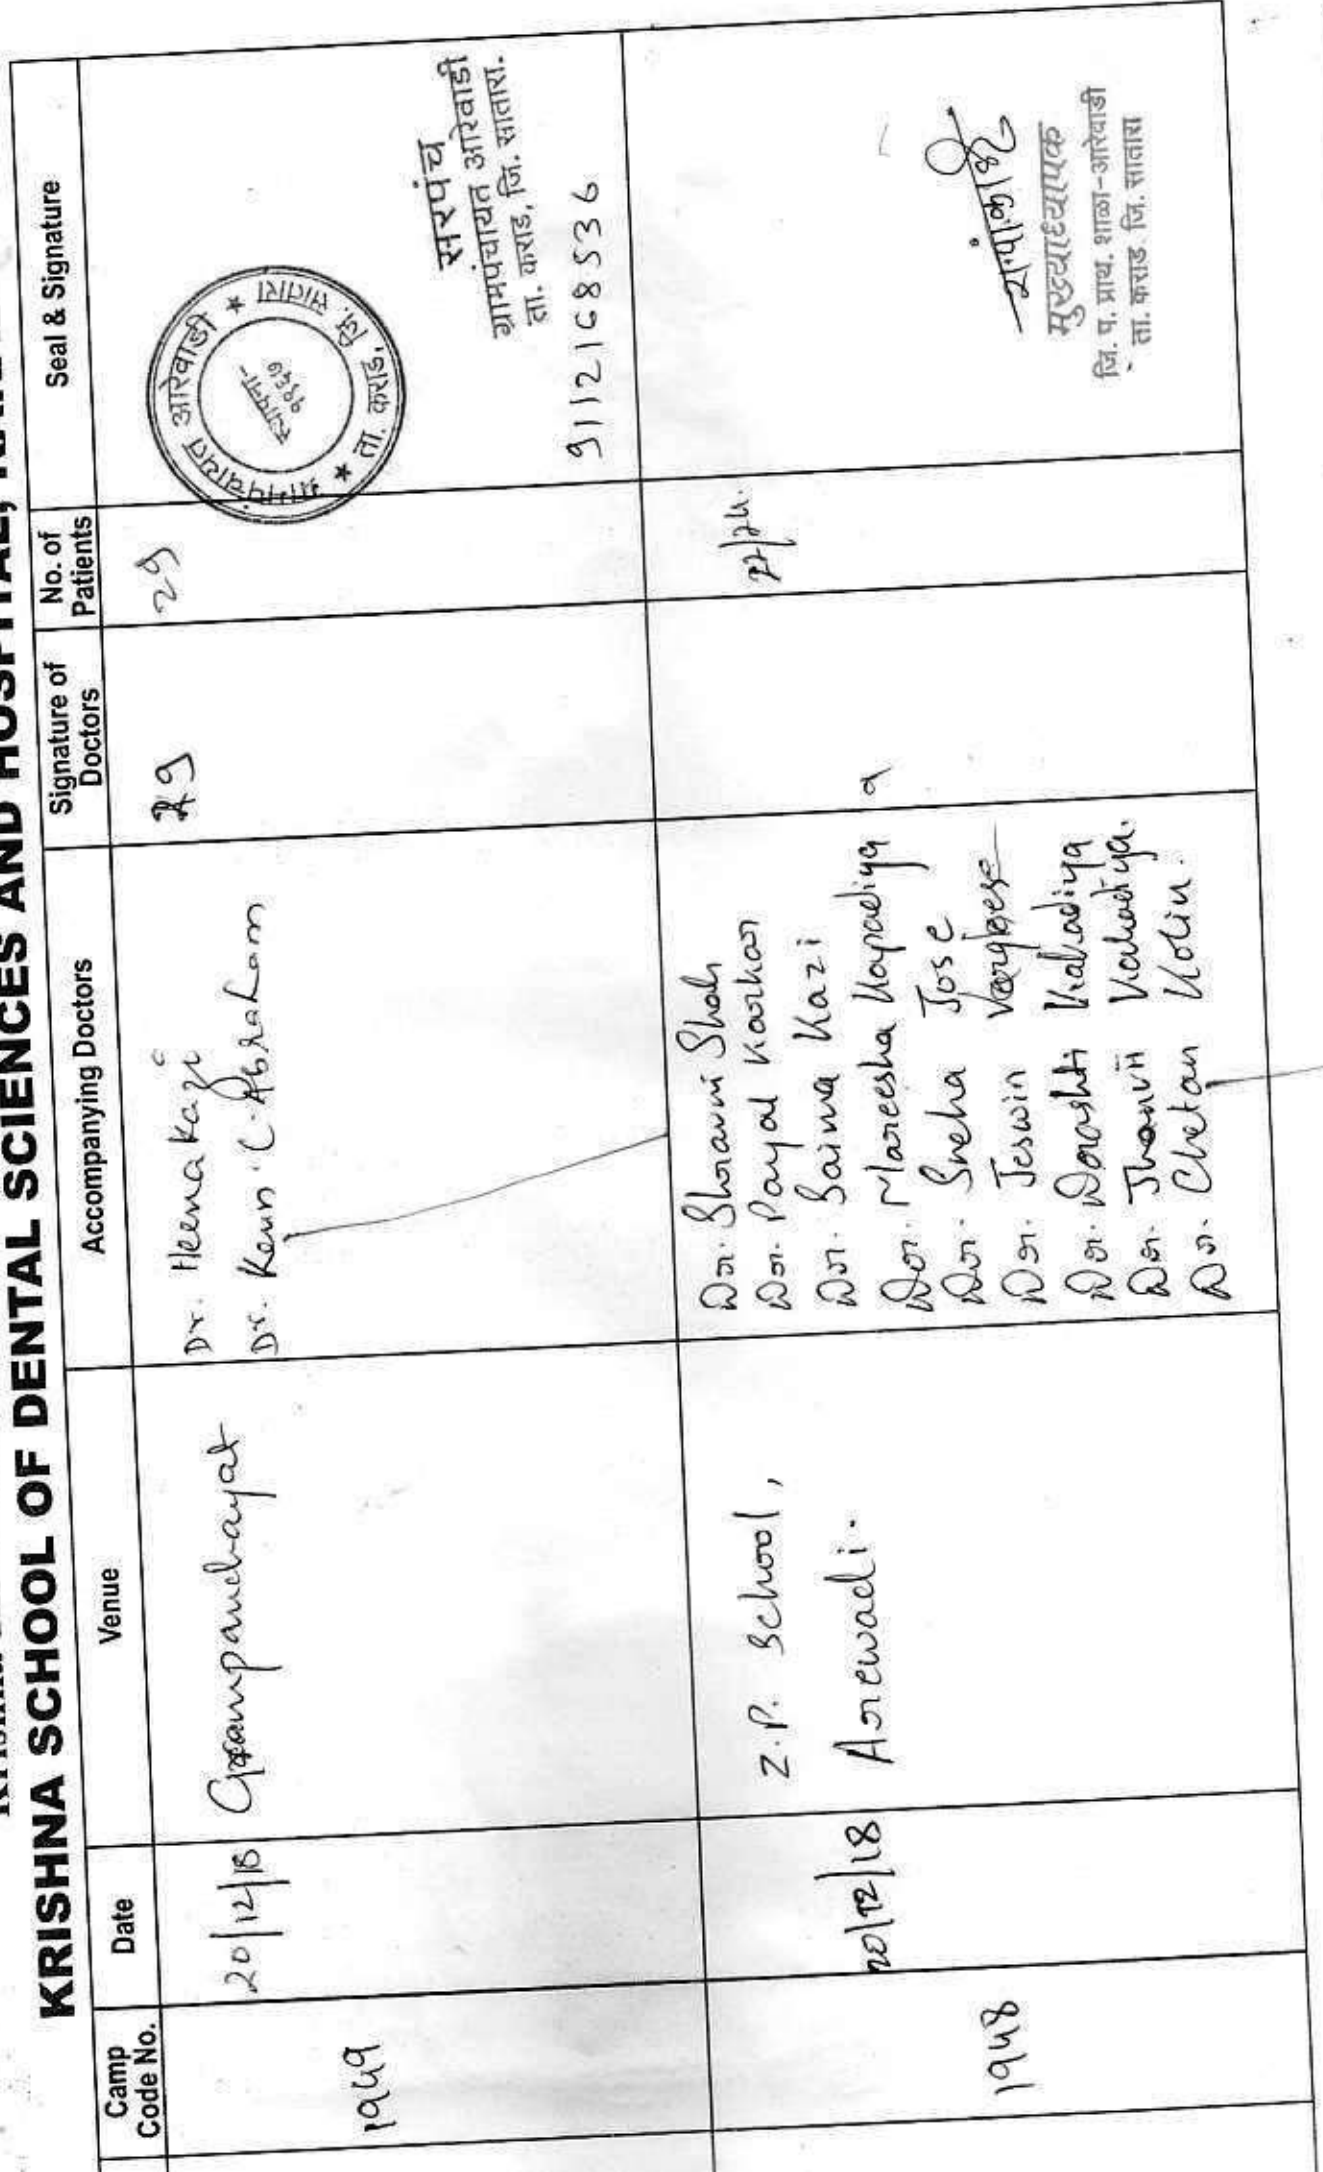 KRISHNA SCHOOL OF DENTAL SCIENCES AND HOSPITAL,
Camp Code No.
Date
Venue
Accompanying Doctors
Signature of Doctors
No. of Patients
Seal & Signature
1949
20/12/18
Grampanchayat
Dr. Heena Kazi
Dr. Kevin C. Abraham
29
29
ग्रामपंचायत आरेवाडी
★ ता. कराड, जि. सातारा ★
स्थापना-
सरपंच
ग्रामपंचायत आरेवाडी
ता. कराड, जि. सातारा.
9112168536
1948
20/12/18
Z.P. School,
Arewadi.
Dr. Shravni Shah
Dr. Payal Karkar
Dr. Saima Kazi
Dr. Mareesha Kapadiya
Dr. Sneha Jose
Dr. Jeswin Varghese
Dr. Drashti Kakadiya
Dr. Jhanvi Kakadiya.
Dr. Chetan Kolin.
9
मुख्याध्यापक
जि. प. प्राथ. शाळा-आरेवाडी
ता. कराड जि. सातारा